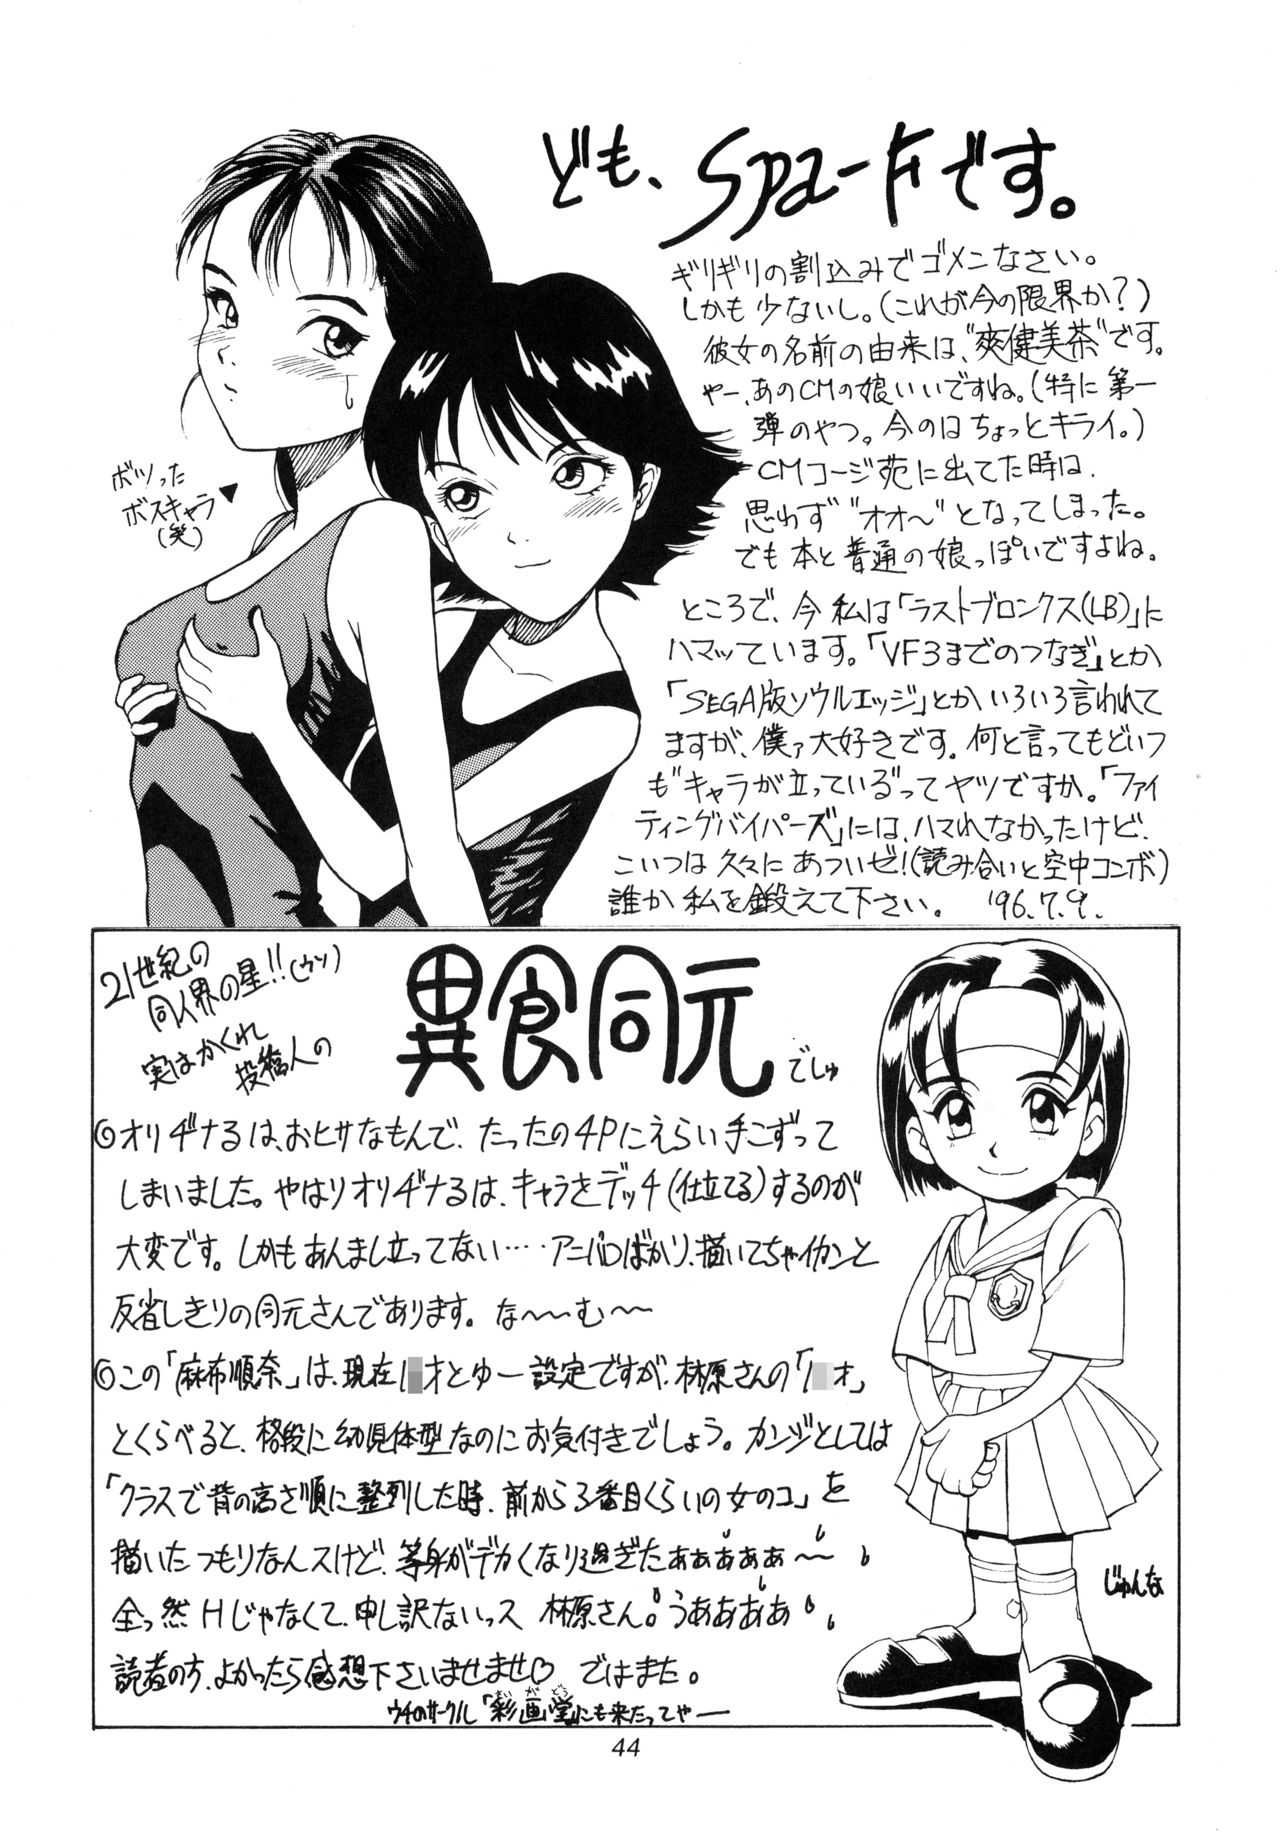 ども、Spa-ドです。
ギリギリの割込みでゴメンなさい。
しかも少ないし。(これが今の限界か?)
彼女の名前の由来は、"爽健美茶"です。
やー、あのCMの娘いいですね。(特に第一
弾のやつ。今のはちょっとキライ。)
CMコージ苑に出てた時は、
思わず"オオ〜"となってしまった。
でも本と普通の娘っぽいですよね。
ところで、今私は「ラストブロンクス(LB)」に
ハマッています。「VF3までのつなぎ」とか
「SEGA版ソウルエッジ」とかいろいろ言われて
ますが、僕ァ大好きです。何と言ってもどいつ
も"キャラが立っている"ってヤツですか。「ファイ
ティングバイパーズ」には、ハマれなかったけど、
こいつは久々にあついゼ!(読み合いと空中コンボ)
誰か私を鍛えて下さい。 '96.7.9.
ボツった
ボスキャラ
(笑)
21世紀の
同人界の星!!(ウソ)
実はかくれ
投稿人の
異食同元でしゅ
◎オリヂナるは、おヒサなもんで、たったの4Pにえらい手こずって
しまいました。やはりオリヂナるは、キャラをデッチ(仕立てる)するのが
大変です。しかもあんまし立ってない‥‥アニパロばかり、描いてちゃイカンと
反省しきりの同元さんであります。な〜〜む〜〜
◎この「麻布順奈」は、現在1 才とゆー設定ですが、林原さんの「1 才」
とくらべると、格段に幼児体型なのにお気付きでしょう。カンジとしては
「クラスで背の高さ順に整列した時、前から3番目くらいの女のコ」を
描いたつもりなんスけど、等身がデカくなり過ぎたぁぁぁぁぁ〜〜
全っ然Hじゃなくて、申し訳ないっス 林原さん。うああああ
読者の方、よかったら感想下さいませませ♡ ではまた。
ウチのサークル「彩画堂」にも来たってやー
さいがどう
じゅんな
44